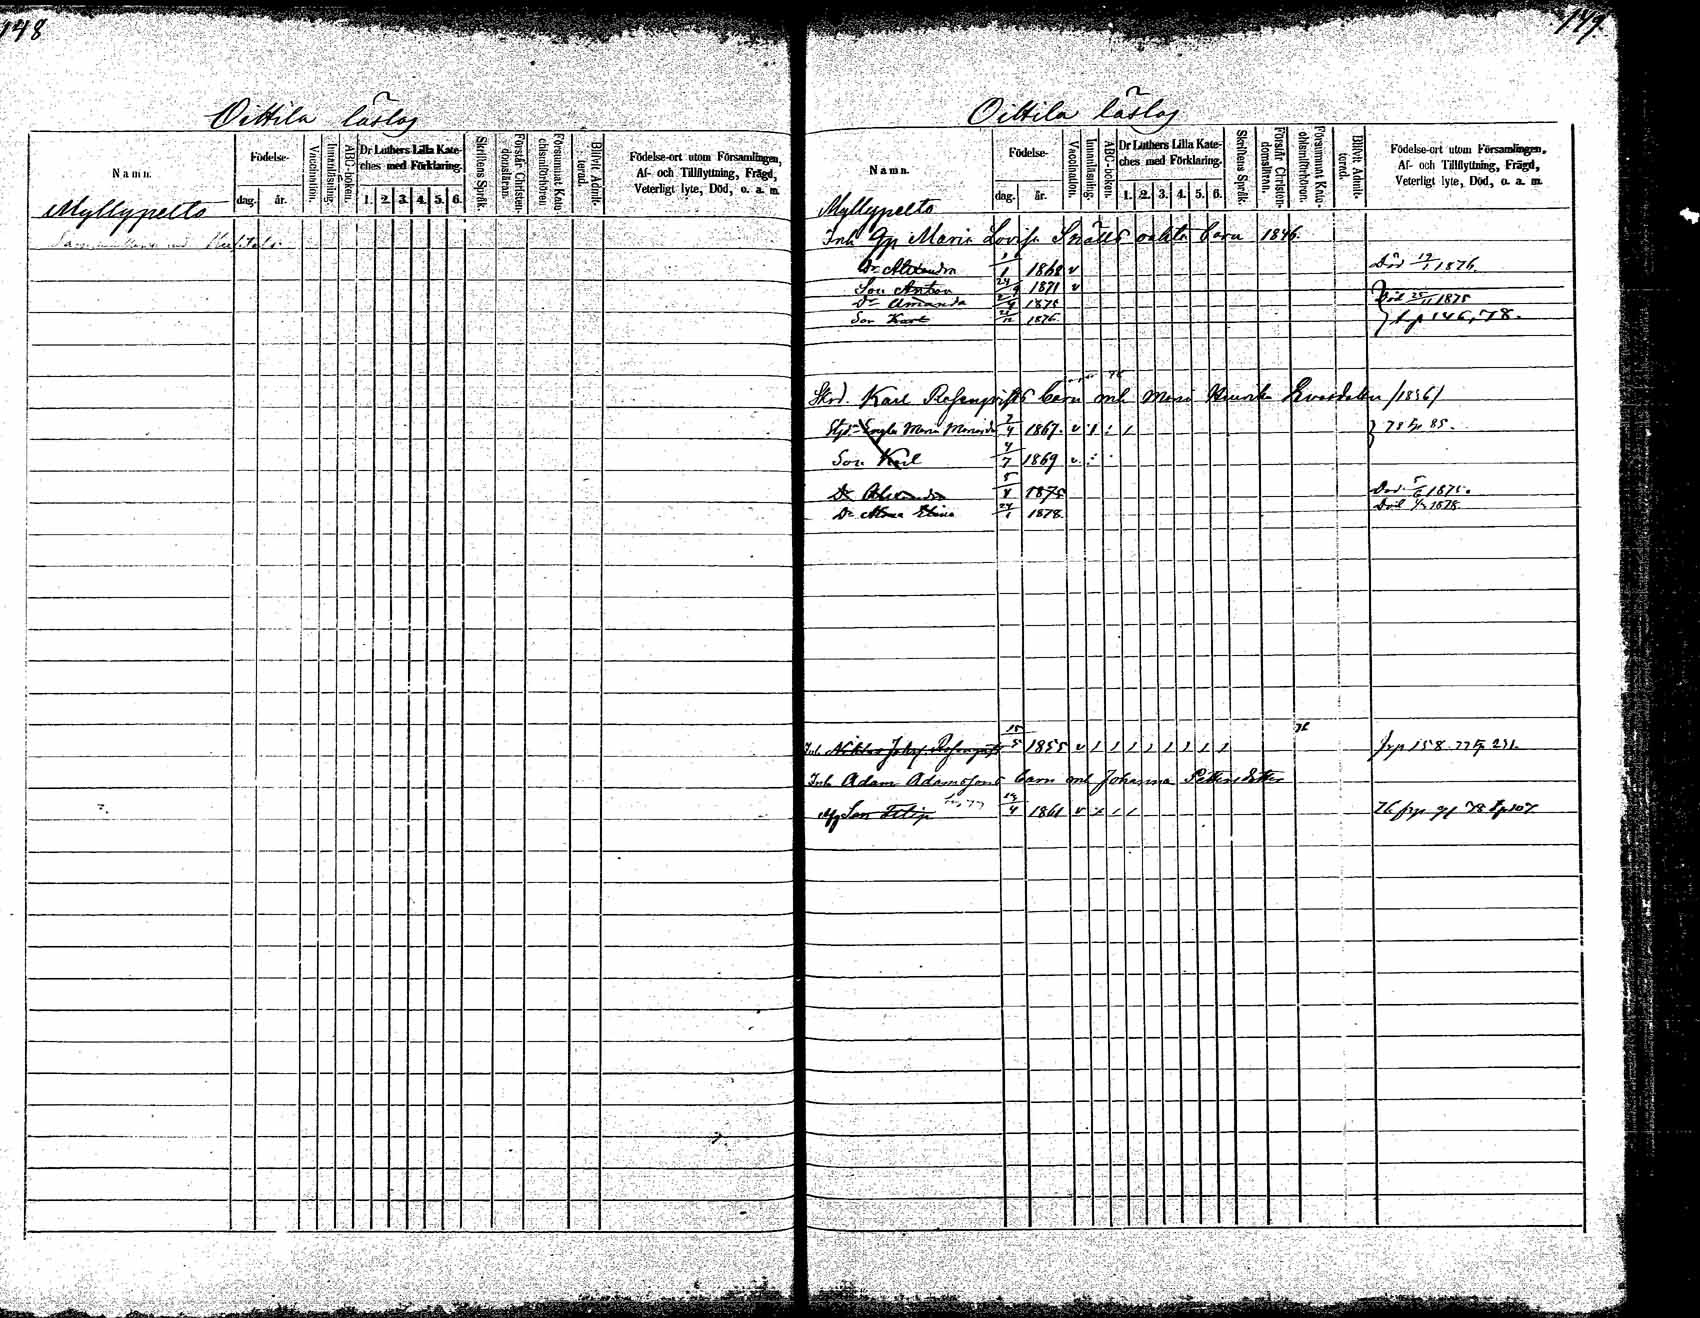 148
Oittila löslag
Namn.
Födelse-
dag.
år.
Vaccination.
Innanläsning.
ABC-boken.
Dr Luthers Lilla Kate-
ches med Förklaring.
1. 2. 3. 4. 5. 6.
Skriftens Språk.
Förstår Christen-
domsläran.
Försummat Kate-
chismiförhören
Blifvit Admit-
terad.
Födelse-ort utom Församlingen,
Af- och Tillflyttning, Frägd,
Veterligt lyte, Död, o. a. m.
Myllypelto
149.
Oittila löslag
Namn.
Födelse-
dag.
år.
Vaccination.
Innanläsning.
ABC-boken.
Dr Luthers Lilla Kate-
ches med Förklaring.
1. 2. 3. 4. 5. 6.
Skriftens Språk.
Förstår Christen-
domsläran.
Försummat Kate-
chismiförhören.
Blifvit Admit-
terad.
Födelse-ort utom Församlingen,
Af- och Tillflyttning, Frägd,
Veterligt lyte, Död, o. a. m.
Myllypelto
Inh Qp Maria Lovisa Snälls oäkta barn 1846.
Dr Alexandra 1868 v Död 19/1 1876.
Son Anton 24/9 1871 v
Dr Amanda 1875 Död 25/11 1875
Son Karl 1876 146, 78.
Skrd. Karl Rosenqvists barn Maria Henrika /1836/
Maria 2/4 1867. v 78 85.
Son Karl 4/7 1869 v
Dr 5/4 1875 Död 5/6 1875.
Dr Elina 24/1 1878. Död 1878.
Inh Rosenqvist 15/5 1855 v 1 1 1 1 1 1 1 1 76 frp 158. 77 231.
Inh Adam Adamssons barn Johanna
Son Filip 4 1861 v 76 frp 78 107